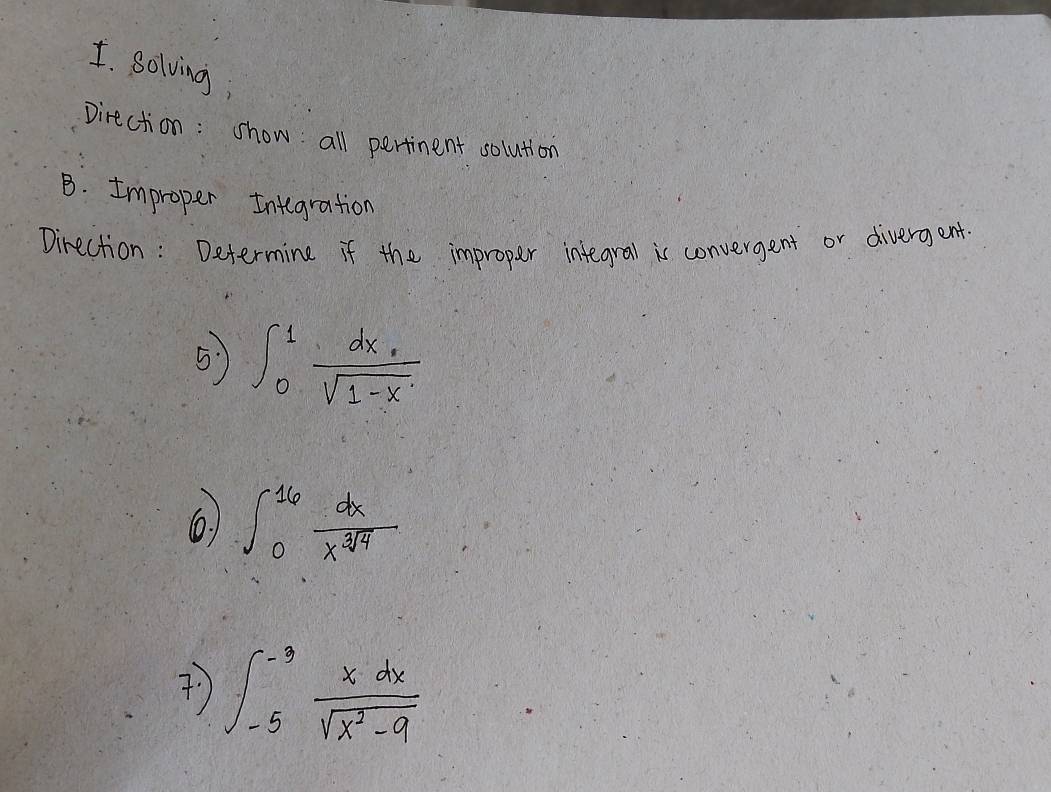 I. Solving;
Direction: show all pertinent solution
B. Improper Integration
Direction: Determine if the improper integral is convergent or divergent.
5.) ∫₀¹ dx / √(1-x)
6.) ∫₀¹⁶ dx / x^∛4
7.) ∫₋₅⁻³ x dx / √(x²-9)